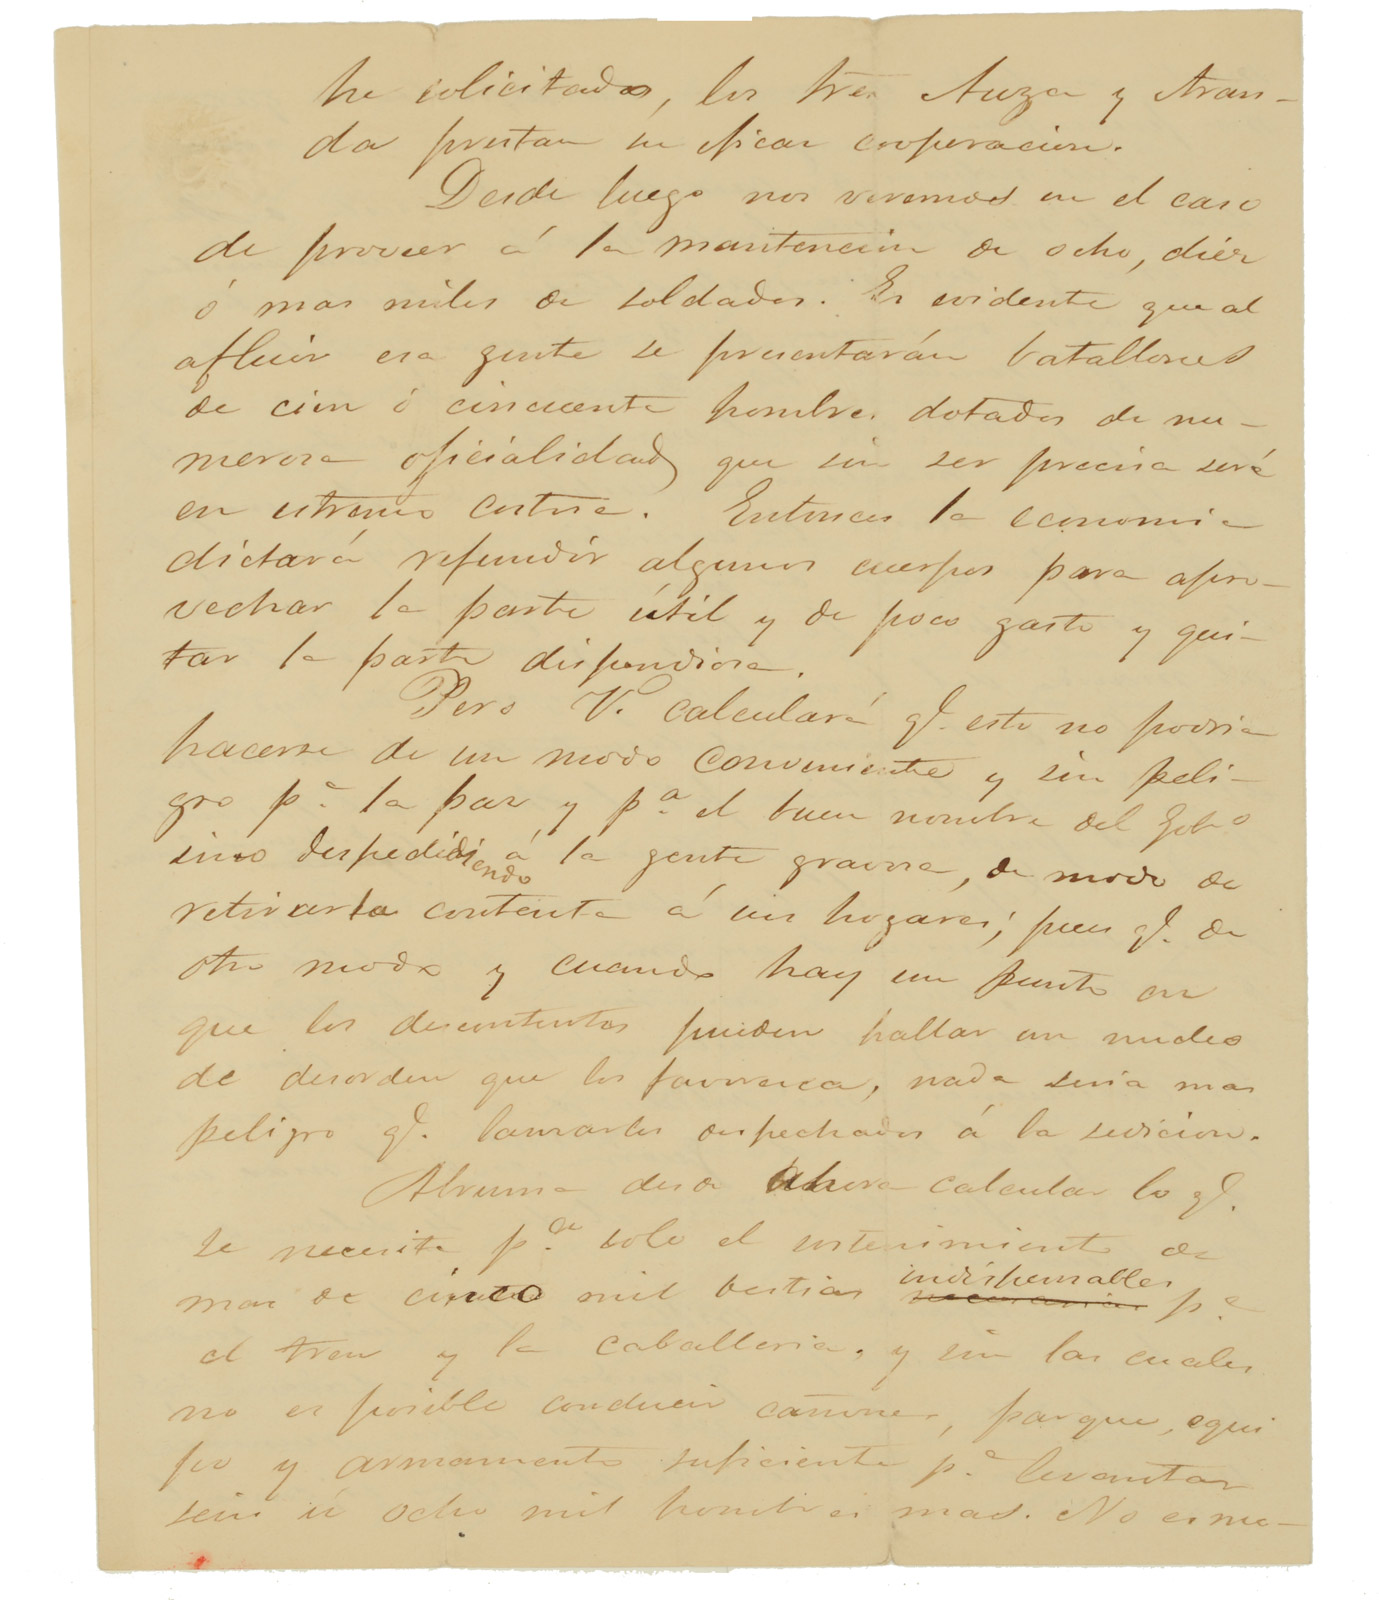 he solicitado, los tres Auza y Aran-
da prestan su eficaz cooperacion.
Desde luego nos veremos en el caso
de proveer á la mantencion de ocho, diez
ó mas miles de soldados. Es evidente que al
afluir esa gente se presentarán batallones
de cien ó cincuenta hombres dotados de nu-
merosa oficialidad que sin ser precisa será
en estremo costosa. Entonces la economia
dictará refundir algunos cuerpos para apro-
vechar la parte útil y de poco gasto y qui-
tar la parte dispendiosa.
Pero V. calculará q. esto no podria
hacerse de un modo conveniente y sin peli-
gro pa. la paz y pa. el buen nombre del Gobno
sino despedidiendo á la gente gravosa, de modo de
retirarla contenta á sus hogares; pues q. de
otro modo y cuando hay un punto en
que los descontentos pueden hallar un nucleo
de desorden que los favoresca, nada seria mas
peligro q. lanzarlos despechados á la sedicion.
Abruma desde ahora calcular lo q.
se necesita pa. solo el sostenimiento de
mas de cinco mil bestias indispensables pa.
el tren y la caballeria, y sin las cuales
no es posible conducir cañones, parque, equi
po y armamento suficiente pa. levantar
seis ú ocho mil hombres mas. No es me-